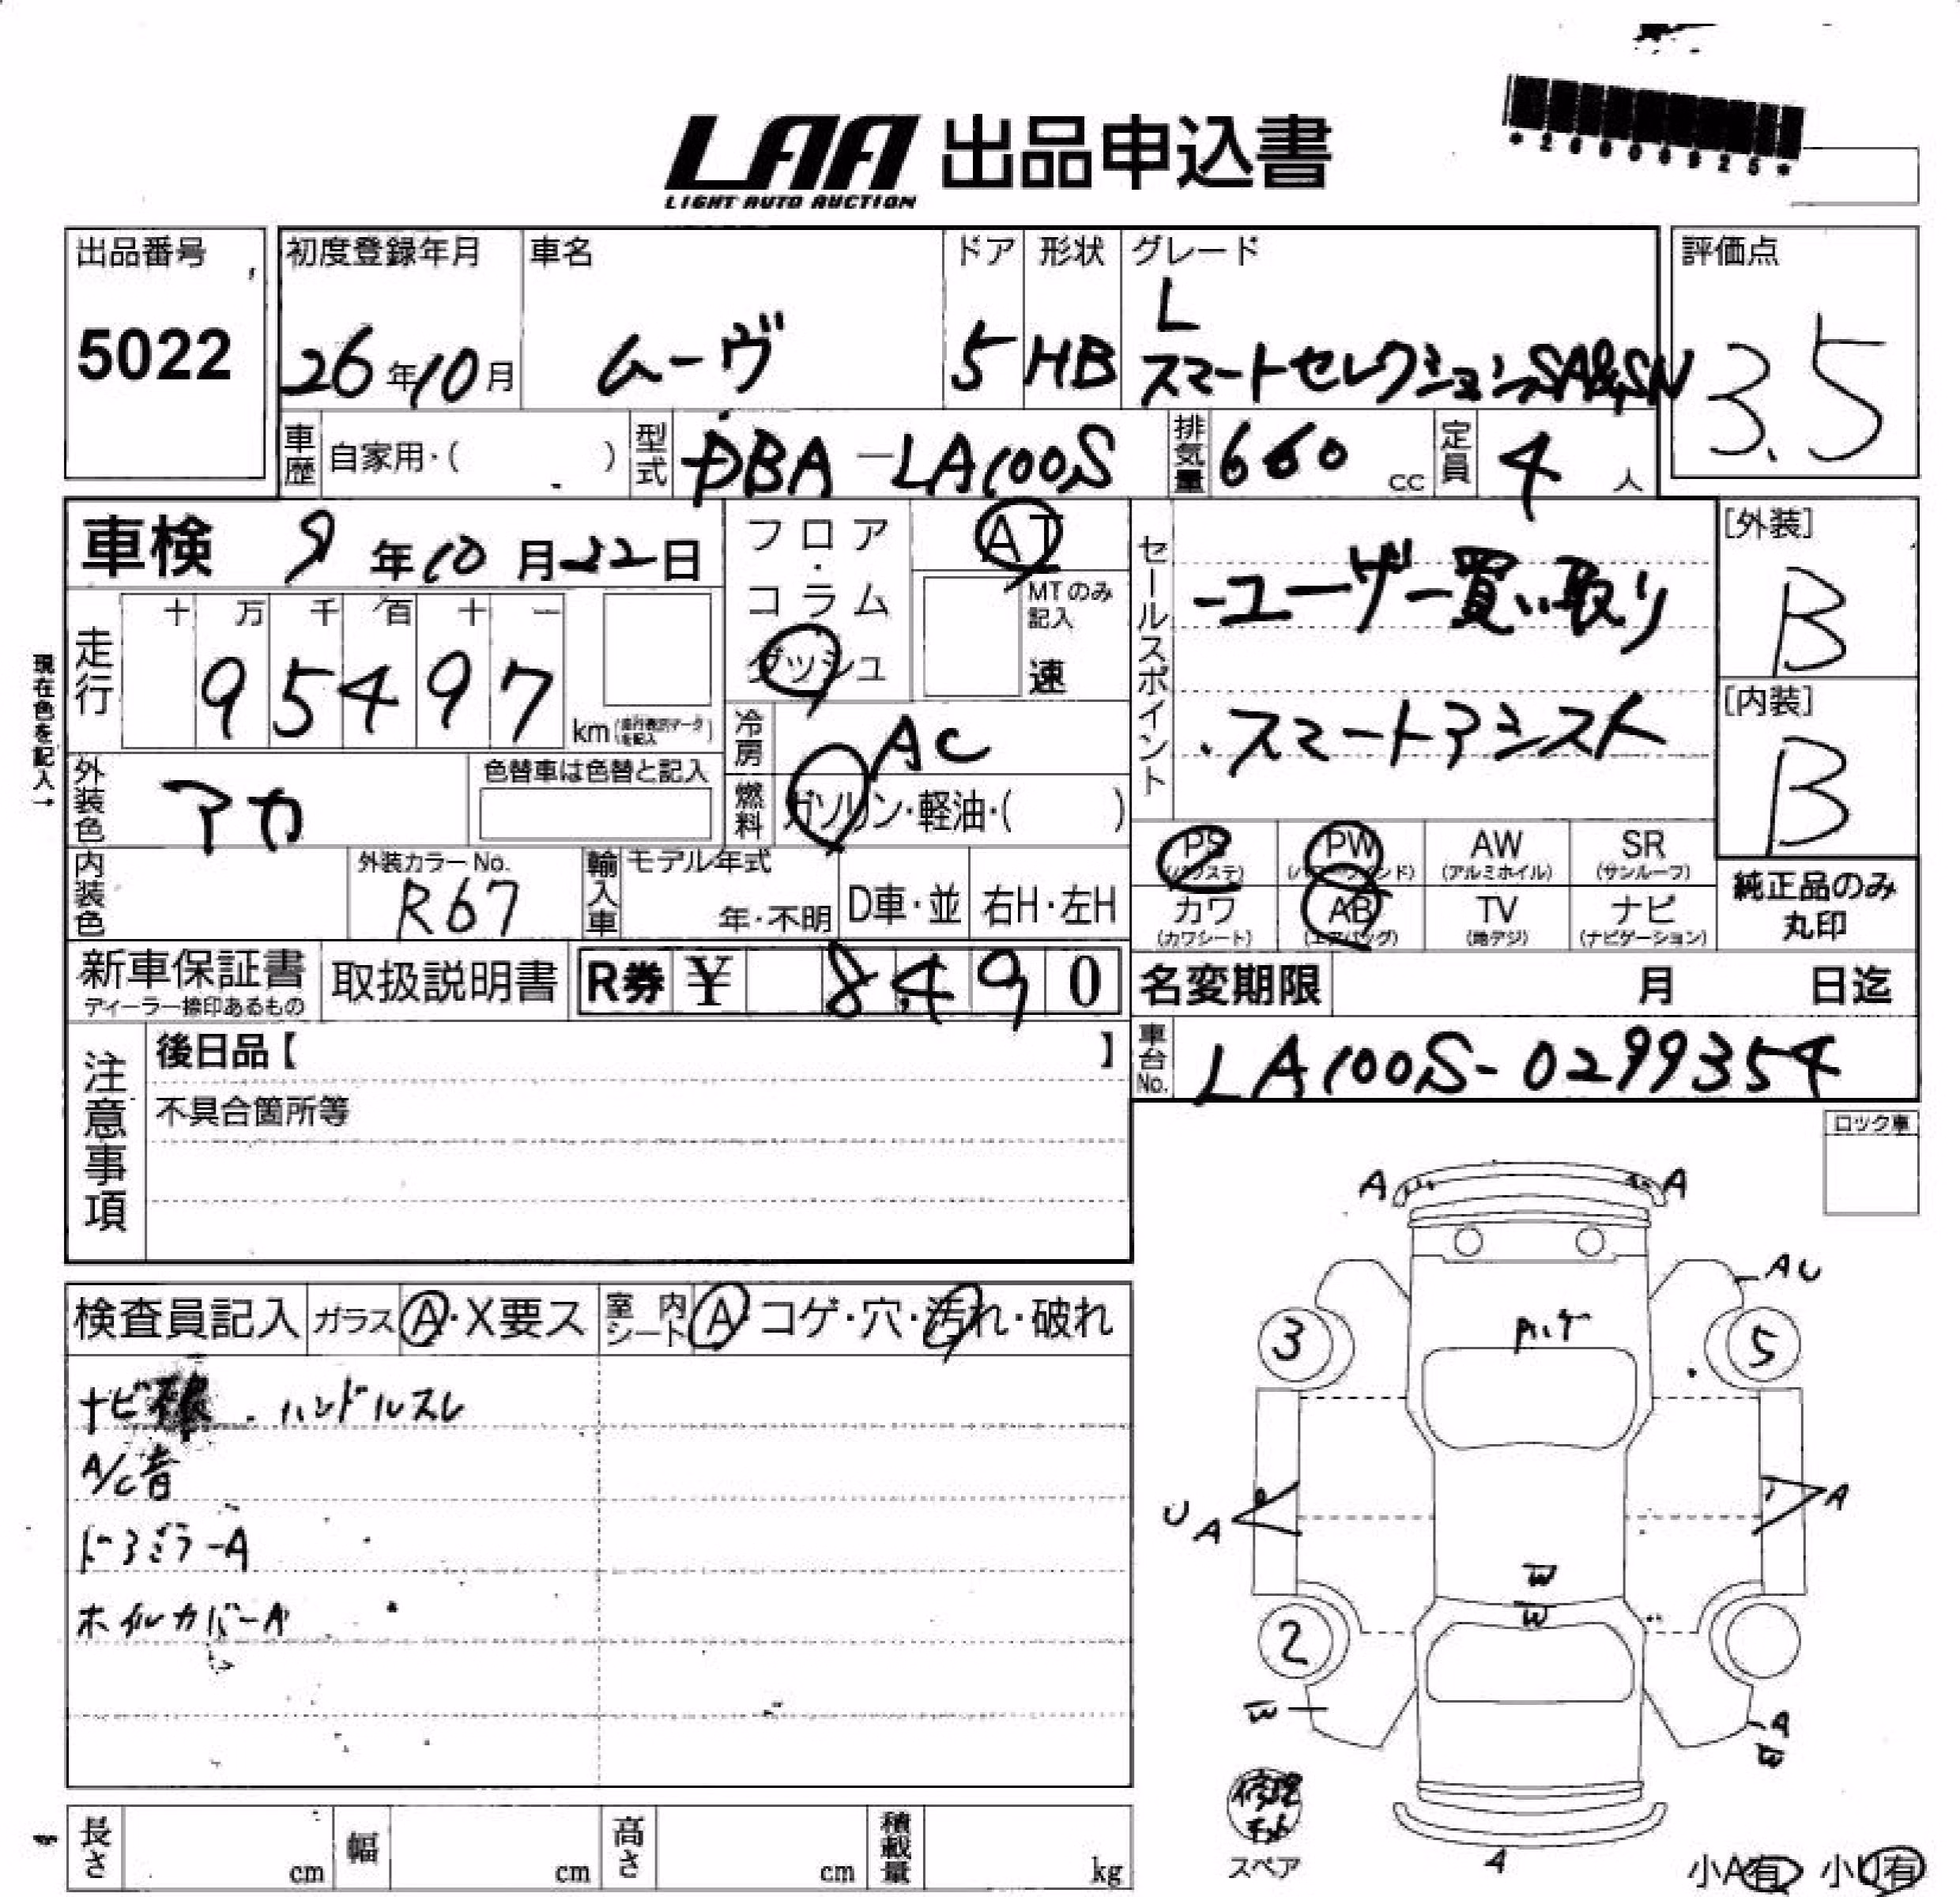 LAA 出品申込書
LIGHT AUTO AUCTION
出品番号 5022
初度登録年月 26年10月
車名 ムーヴ
ドア 5
形状 HB
グレード L
スマートセレクションSA&SN
評価点 3.5
車歴 自家用・( )
型式 DBA-LA100S
排気量 660 cc
定員 4 人
車検 9年10月22日
フロア・コラム ダッシュ
AT
MTのみ記入 速
現在色を記入→
走行 十万千百十一
95497 km
冷房 AC
燃料 ガソリン・軽油・( )
外装色 アカ
色替車は色替と記入
内装色
外装カラーNo. R67
輸入車 モデル年式 年・不明 D車・並 右H・左H
セールスポイント
-ユーザー買い取り
・スマートアシスト
[外装] B
[内装] B
PS (パワステ) PW (パワーウインド) AW (アルミホイル) SR (サンルーフ)
カワ (カワシート) AB (エアバッグ) TV (地デジ) ナビ (ナビゲーション)
純正品のみ丸印
新車保証書 ディーラー捺印あるもの
取扱説明書
R券 ¥ 8,490
名変期限 月 日迄
車台No. LA100S-0299354
注意事項
後日品【 】
不具合箇所等
ロック車
検査員記入 ガラス A・X要ス 室内シート A コゲ・穴・汚れ・破れ
ナビ
ハンドルスレ
A/C音
ドアミラーA
ホイルカバーA
A A
AU
3 5
U A A
W
W
2
W A
W
修理キット
スペア
A
小A有 小U有
長さ cm 幅 cm 高さ cm 積載量 kg